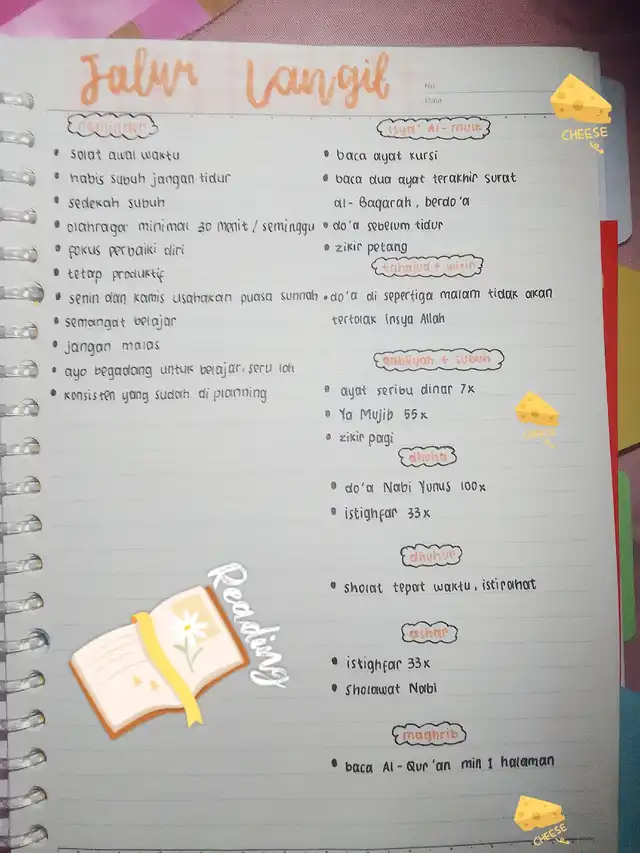 Jalur Langit
No
Date
• solat awal waktu
• habis subuh jangan tidur
• sedekah subuh
• olahraga minimal 30 menit / seminggu
• fokus perbaiki diri
• tetap produktif
• senin dan kamis usahakan puasa sunnah
• semangat belajar
• jangan malas
• ayo begadang untuk belajar, seru loh
• konsisten yang sudah di planning
Reading
isya' Al-mulk
• baca ayat kursi
• baca dua ayat terakhir surat
al-Baqarah, berdo'a
• do'a sebelum tidur
• zikir petang
tahajud + witir
• do'a di sepertiga malam tidak akan
tertolak Insya Allah
qobliyah + subuh
• ayat seribu dinar 7x
• Ya Mujib 55x
• zikir pagi
dhuha
• do'a Nabi Yunus 100x
• istighfar 33x
dhuhur
• sholat tepat waktu, istirahat
ashar
• istighfar 33x
• sholawat Nabi
maghrib
• baca Al-Qur'an min 1 halaman
CHEESE
CHEESE